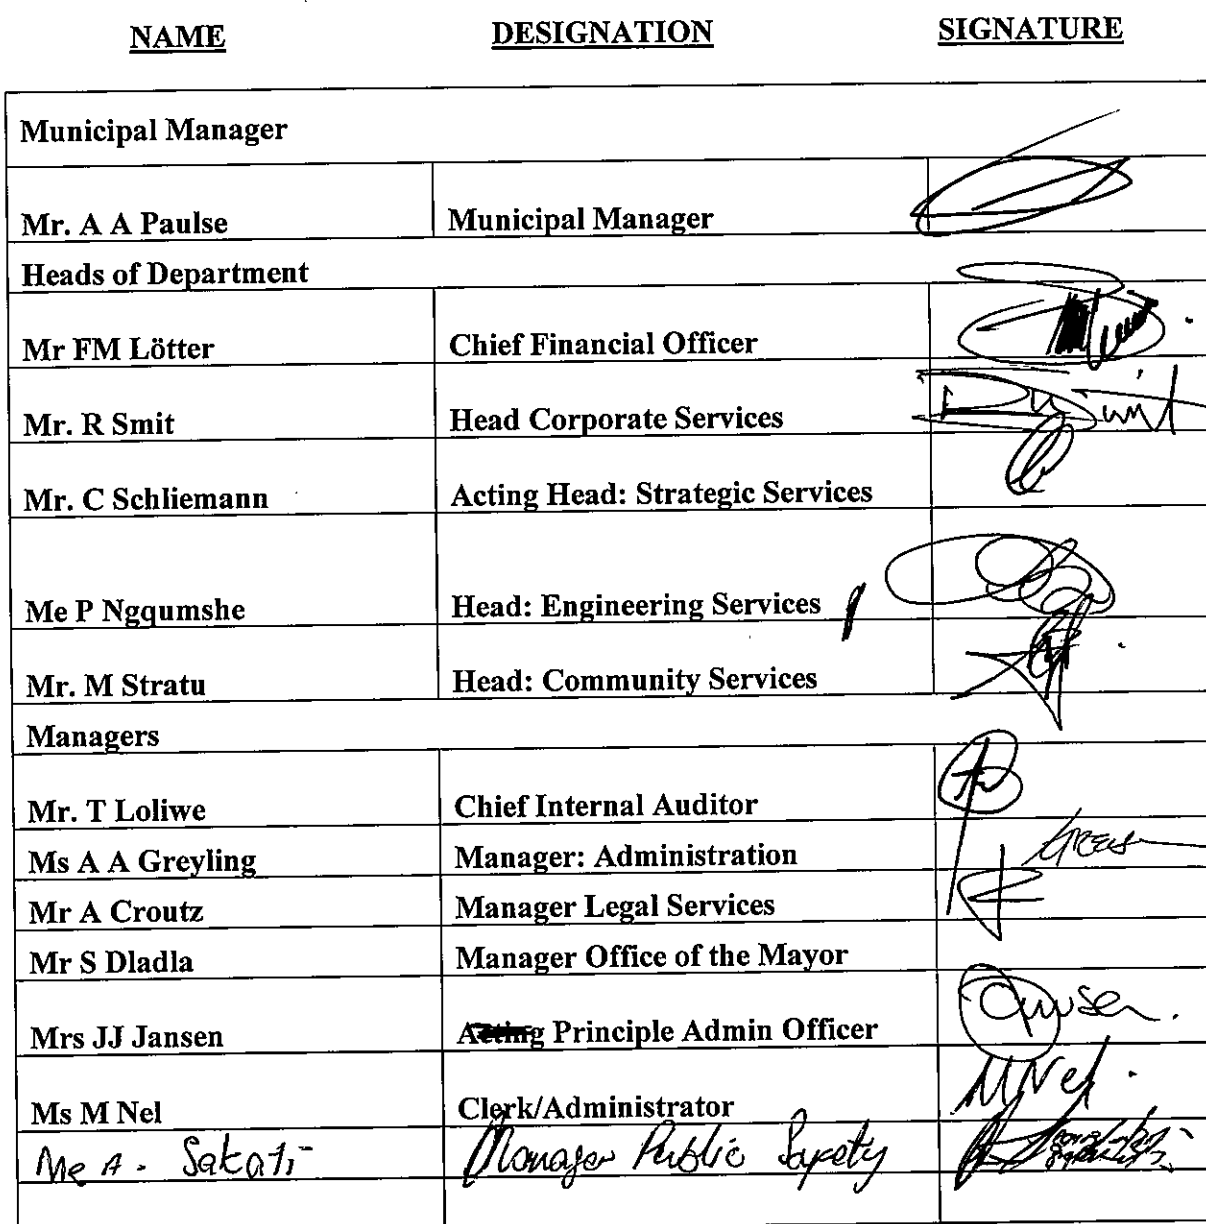 NAME DESIGNATION SIGNATURE
Municipal Manager
Mr. A A Paulse Municipal Manager
Heads of Department
Mr FM Lötter Chief Financial Officer
Mr. R Smit Head Corporate Services
Mr. C Schliemann Acting Head: Strategic Services
Me P Ngqumshe Head: Engineering Services
Mr. M Stratu Head: Community Services
Managers
Mr. T Loliwe Chief Internal Auditor
Ms A A Greyling Manager: Administration
Mr A Croutz Manager Legal Services
Mr S Dladla Manager Office of the Mayor
Mrs JJ Jansen Acting Principle Admin Officer
Ms M Nel Clerk/Administrator MNel.
Me A. Manager Public Safety